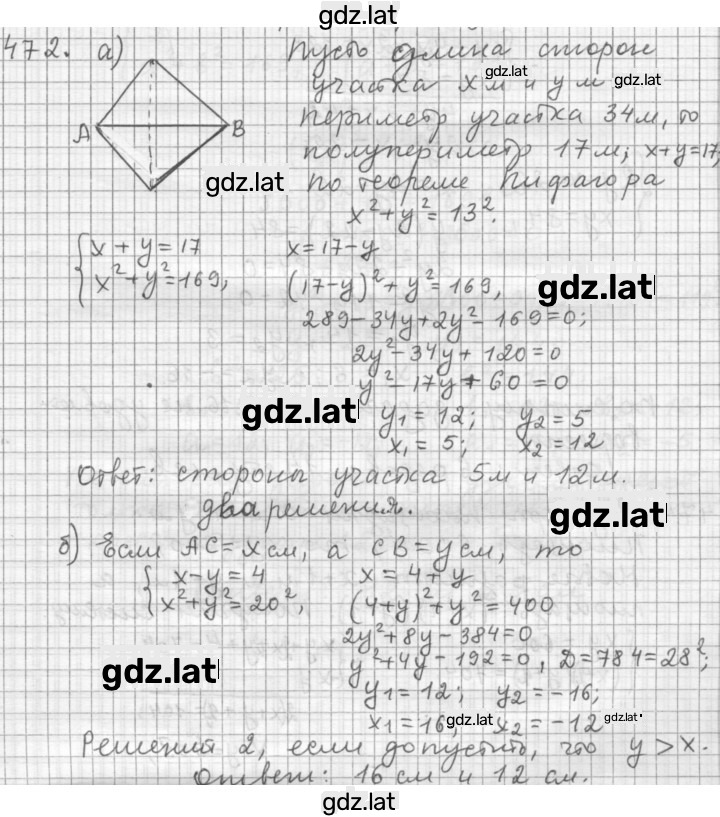 gdz.lat
472. а) Пусть длина сторон
участка x м и y м gdz.lat gdz.lat
периметр участка 34 м, то
A B полупериметр 17 м; x+y=17,
gdz.lat по теореме Пифагора
x²+y²=13².
{x+y=17 x=17-y
x²+y²=169, (17-y)²+y²=169, gdz.lat
289-34y+2y²-169=0;
2y²-34y+120=0
y²-17y+60=0
gdz.lat y₁=12; y₂=5
x₁=5; x₂=12
Ответ: стороны участка 5м и 12м.
два решения. gdz.lat
б) Если AC=x см, а CB=y см, то
{x-y=4 x=4+y
x²+y²=20², (4+y)²+y²=400
2y²+8y-384=0
gdz.lat y²+4y-192=0, D=784=28²;
y₁=12; y₂=-16;
x₁=16, gdz.lat x₂=-12 gdz.lat
Решений 2, если допустить, что y>x.
Ответ: 16 см и 12 см.
gdz.lat